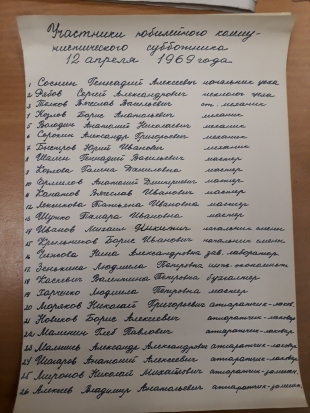 Участники юбилейного комму-
нистического субботника
12 апреля 1969 года
1 Соснин Геннадий Алексеевич начальник цеха
2 Сергей Александрович механик цеха
3 Вячеслав Васильевич ст. механик
4 Козлов Борис Анатольевич механик
5 Володин Анатолий Николаевич механик
6 Сорокин Александр Григорьевич механик
7 Быстров Юрий Иванович механик
8 Шалин Геннадий Васильевич мастер
9 Козлова Галина Даниловна мастер
10 Ермилов Анатолий Дмитриевич мастер
11 Вячеслав Иванович мастер
12 Татьяна Ивановна мастер
13 Тамара Ивановна мастер
14 Иванов Михаил Никитич начальник смены
15 Борис Иванович начальник смены
16 Нина Александровна зав. лаборатор.
17 Зенькина Людмила Петровна
18 Валентина Петровна бухгалтер
19 Харченко Людмила Петровна мастер
20 Николай Григорьевич аппаратчик
21 Новиков Борис Алексеевич аппаратчик
22 Малинин Глеб Павлович аппаратчик
23 Александр Александрович аппаратчик
24 Шикарев Анатолий Алексеевич аппаратчик
25 Миронов Николай Михайлович аппаратчик
26 Алексеев Владимир Анатольевич аппаратчик